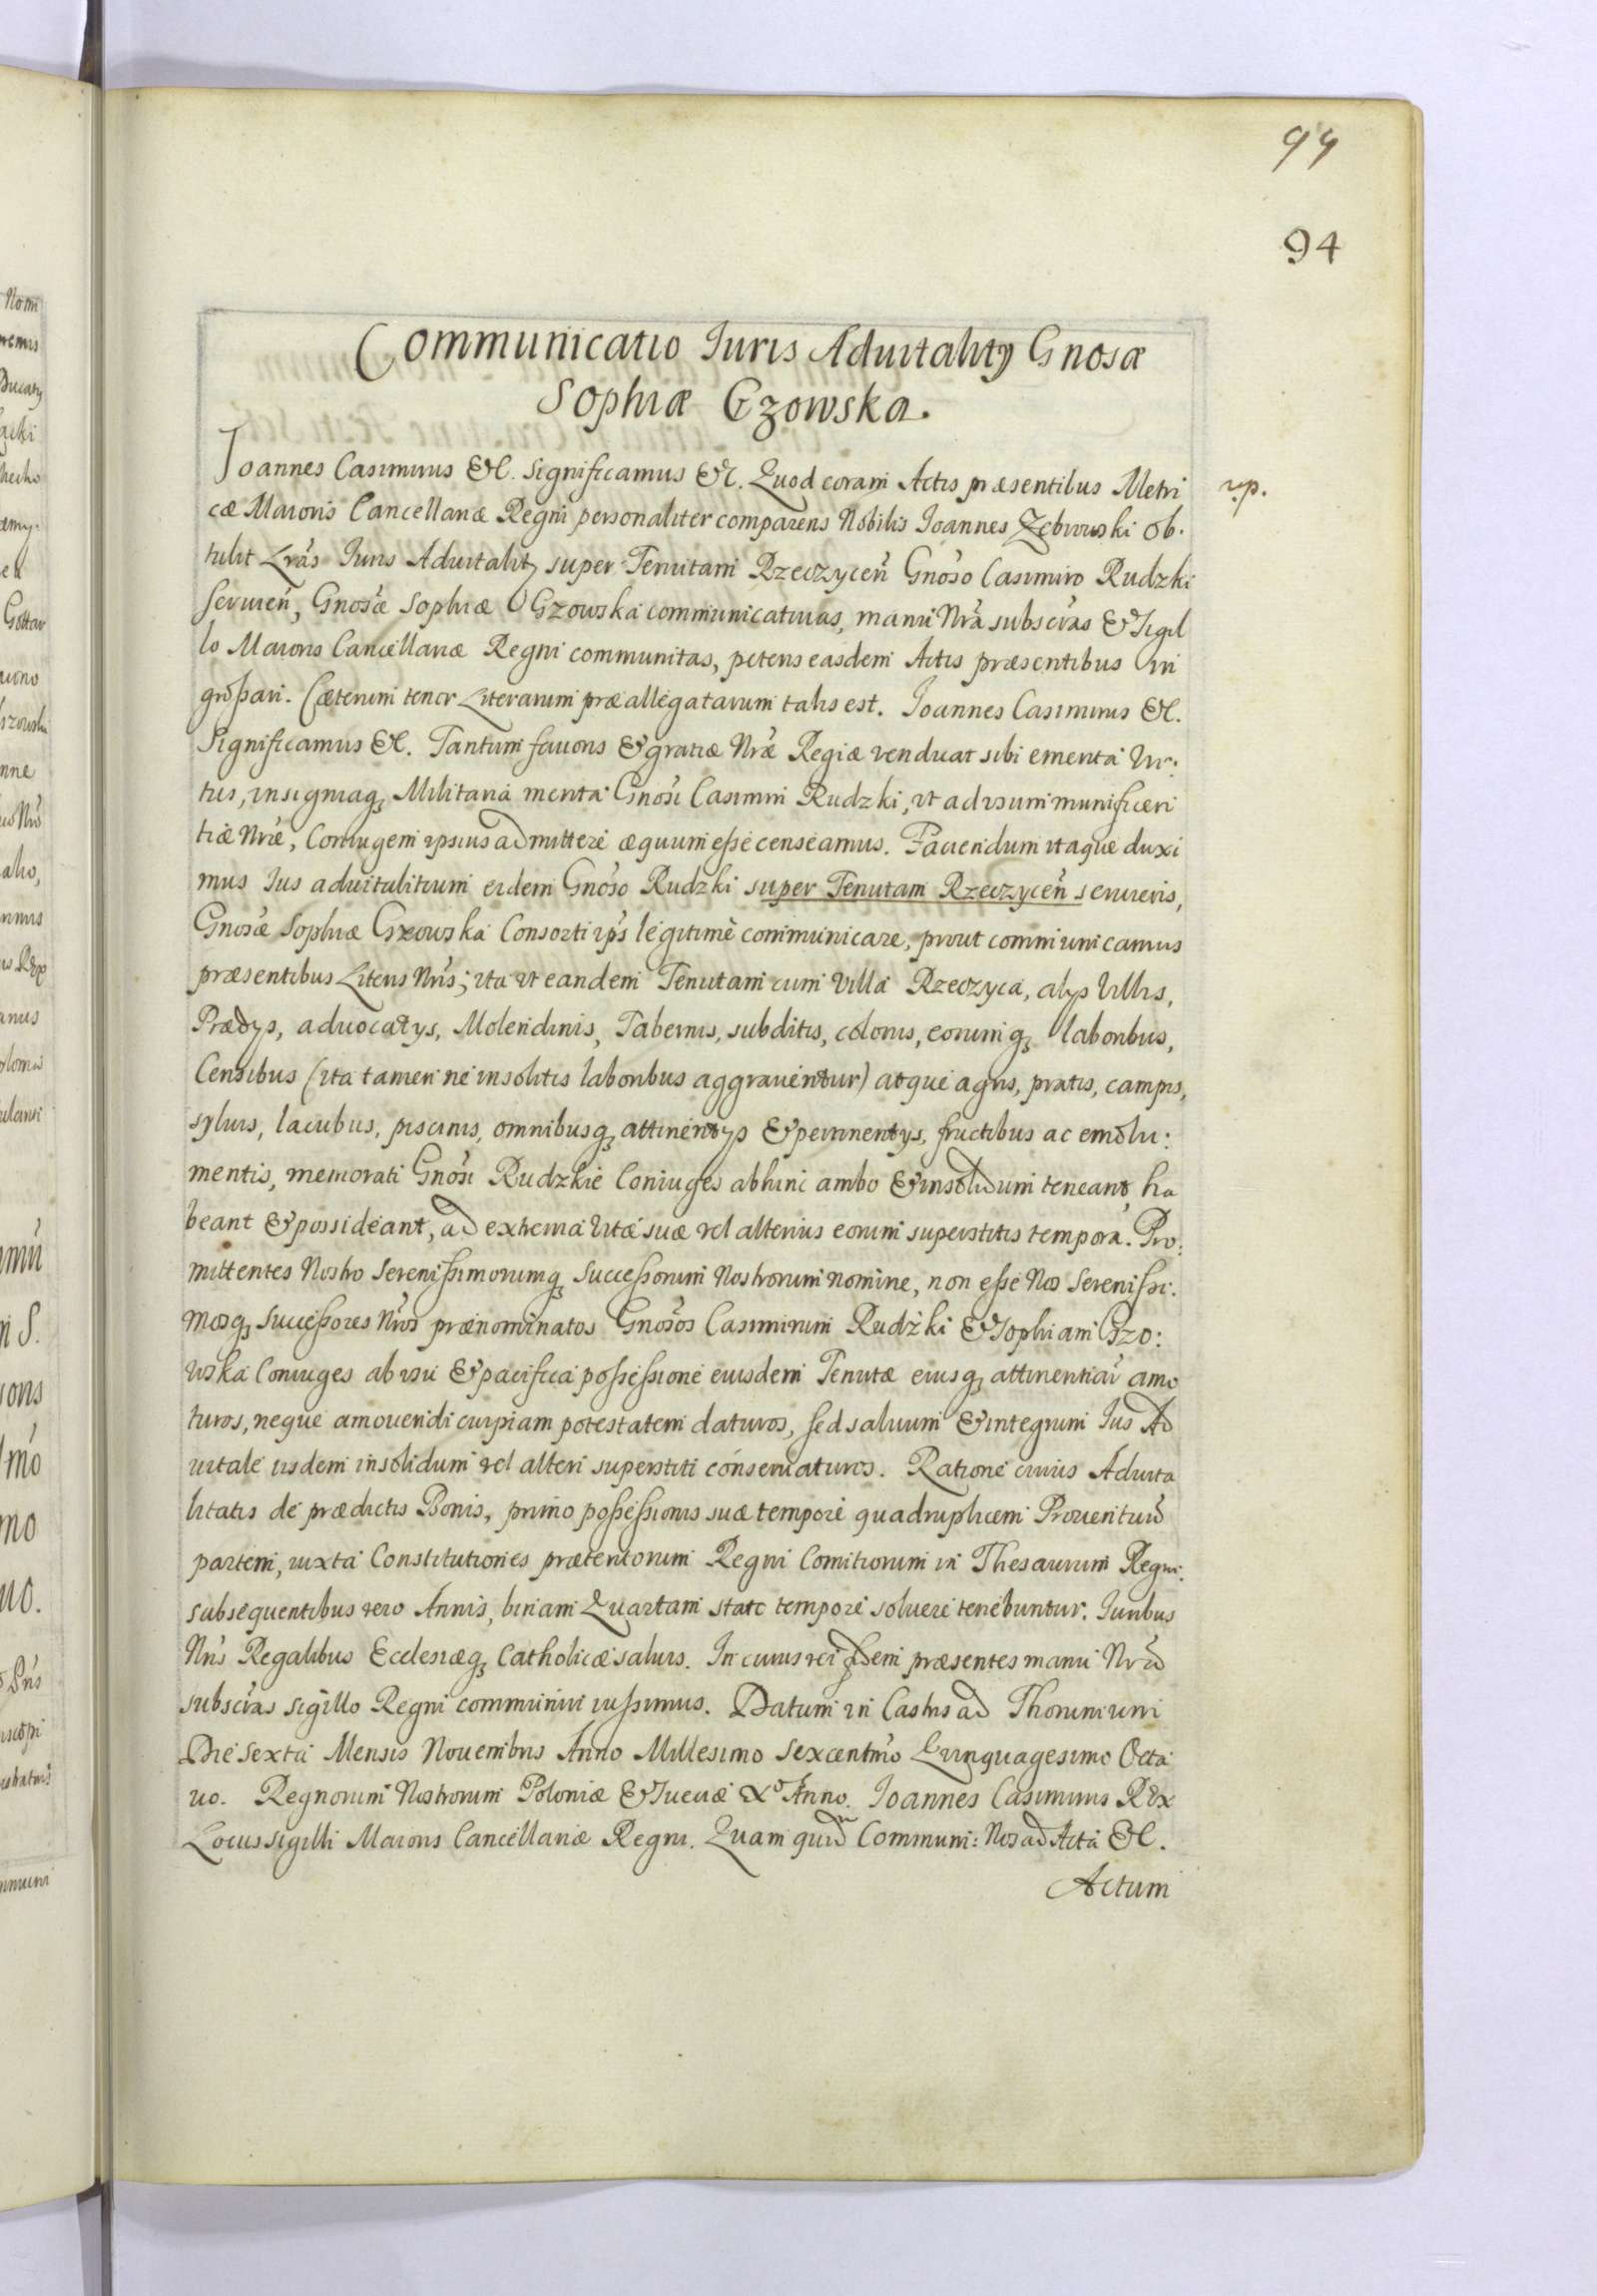 94
94
Communicatio Iuris Aduitalitȳ Gnosæ
Sophiæ Gzowska.
Ioannes Casimirus &c. Significamus &c. Quod coram Actis præsentibus Metri
rp.
cæ Maioris Cancellariæ Regni personaliter comparens Nobilis Ioannes Zebrowski ob.
tulit Lras Iuris Aduitalit super Tenutam Rzeczyceñ Gnoso Casimiro Rudzki
seruieñ, Gnosæ Sophiæ Gzowska communicatiuas, manu Nra subscras & Sigil
lo Maioris Cancellariæ Regni communitas, petens easdem Actis præsentibus in
grossari. Cæterum tenor Literarum præallegatarum talis est. Ioannes Casimirus &c.
Significamus &c. Tantum fauoris & gratiæ Nræ Regiæ vendicat sibi emerita Vir:
tus, insigniaq; Militaria merita Gnosi Casimiri Rudzki, vt ad vsum munificen
tiæ Nræ, Coniugem ipsius admittere æquum esse censeamus. Faciendum itaque duxi
mus Ius aduitalitium eidem Gnoso Rudzki super Tenutam Rzeczyceñ seruiens,
Gnosæ Sophiæ Gzowska Consorti ips legitimè communicare, prout communicamus
præsentibus Literis Nris; ita vt eandem Tenutam cum Villa Rzeczyca, alys Villis,
Prædys, aduocatys, Molendinis, Tabernis, subditis, colonis, eorumq; laboribus,
Censibus (ita tamen ne insolitis laboribus aggrauentur) atque agris, pratis, campis,
syluis, lacubus, piscinis, omnibusq; attinentys & pertinentys, fructibus ac emolu:
mentis, memorati Gnosi Rudzkie Coniuges abhinc ambo & insolidum teneant ha
beant & possideant, ad extrema vitæ suæ vel alterius eorum superstitis tempora. Pro:
mittentes Nostro Serenissimorumq; Successorum Nostrorum nomine, non esse Nos Serenissi:
mosq; Successores Nros prænominatos Gnosos Casimirum Rudzki & Sophiam Gzo:
wska Coniuges ab vsu & pacifica possessione eiusdem Tenutæ eiusq; attinentiar amo
turos, neque amouendi cuipiam potestatem daturos, sed saluum & integrum Ius Ad
uitale iisdem insolidum vel alteri superstiti conseruaturos. Ratione cuius Aduita
litatis de prædictis Bonis, primo possessionis suæ tempore quadruplicem Prouentuũ
partem, iuxta Constitutiones præteritorum Regni Comitiorum in Thesaurum Regni.
subsequentibus vero Annis, binam Quartam stato tempore soluere tenebuntur. Iuribus
Nris Regalibus Ecclesiæq; Catholicæ saluis. In cuius rei fidem præsentes manu Nra
subscras sigillo Regni communiri iussimus. Datum in Castris ad Thoruniuni
Die Sexta Mensis Nouembris Anno Millesimo Sexcentmo Quinquagesimo Octa
uo. Regnorum Nostrorum Poloniæ & Sueciæ Xo Anno. Ioannes Casimirus Rex
Locus sigilli Maioris Cancellariæ Regni. Quam quid Communi: Nos ad Acta &c.
Actum